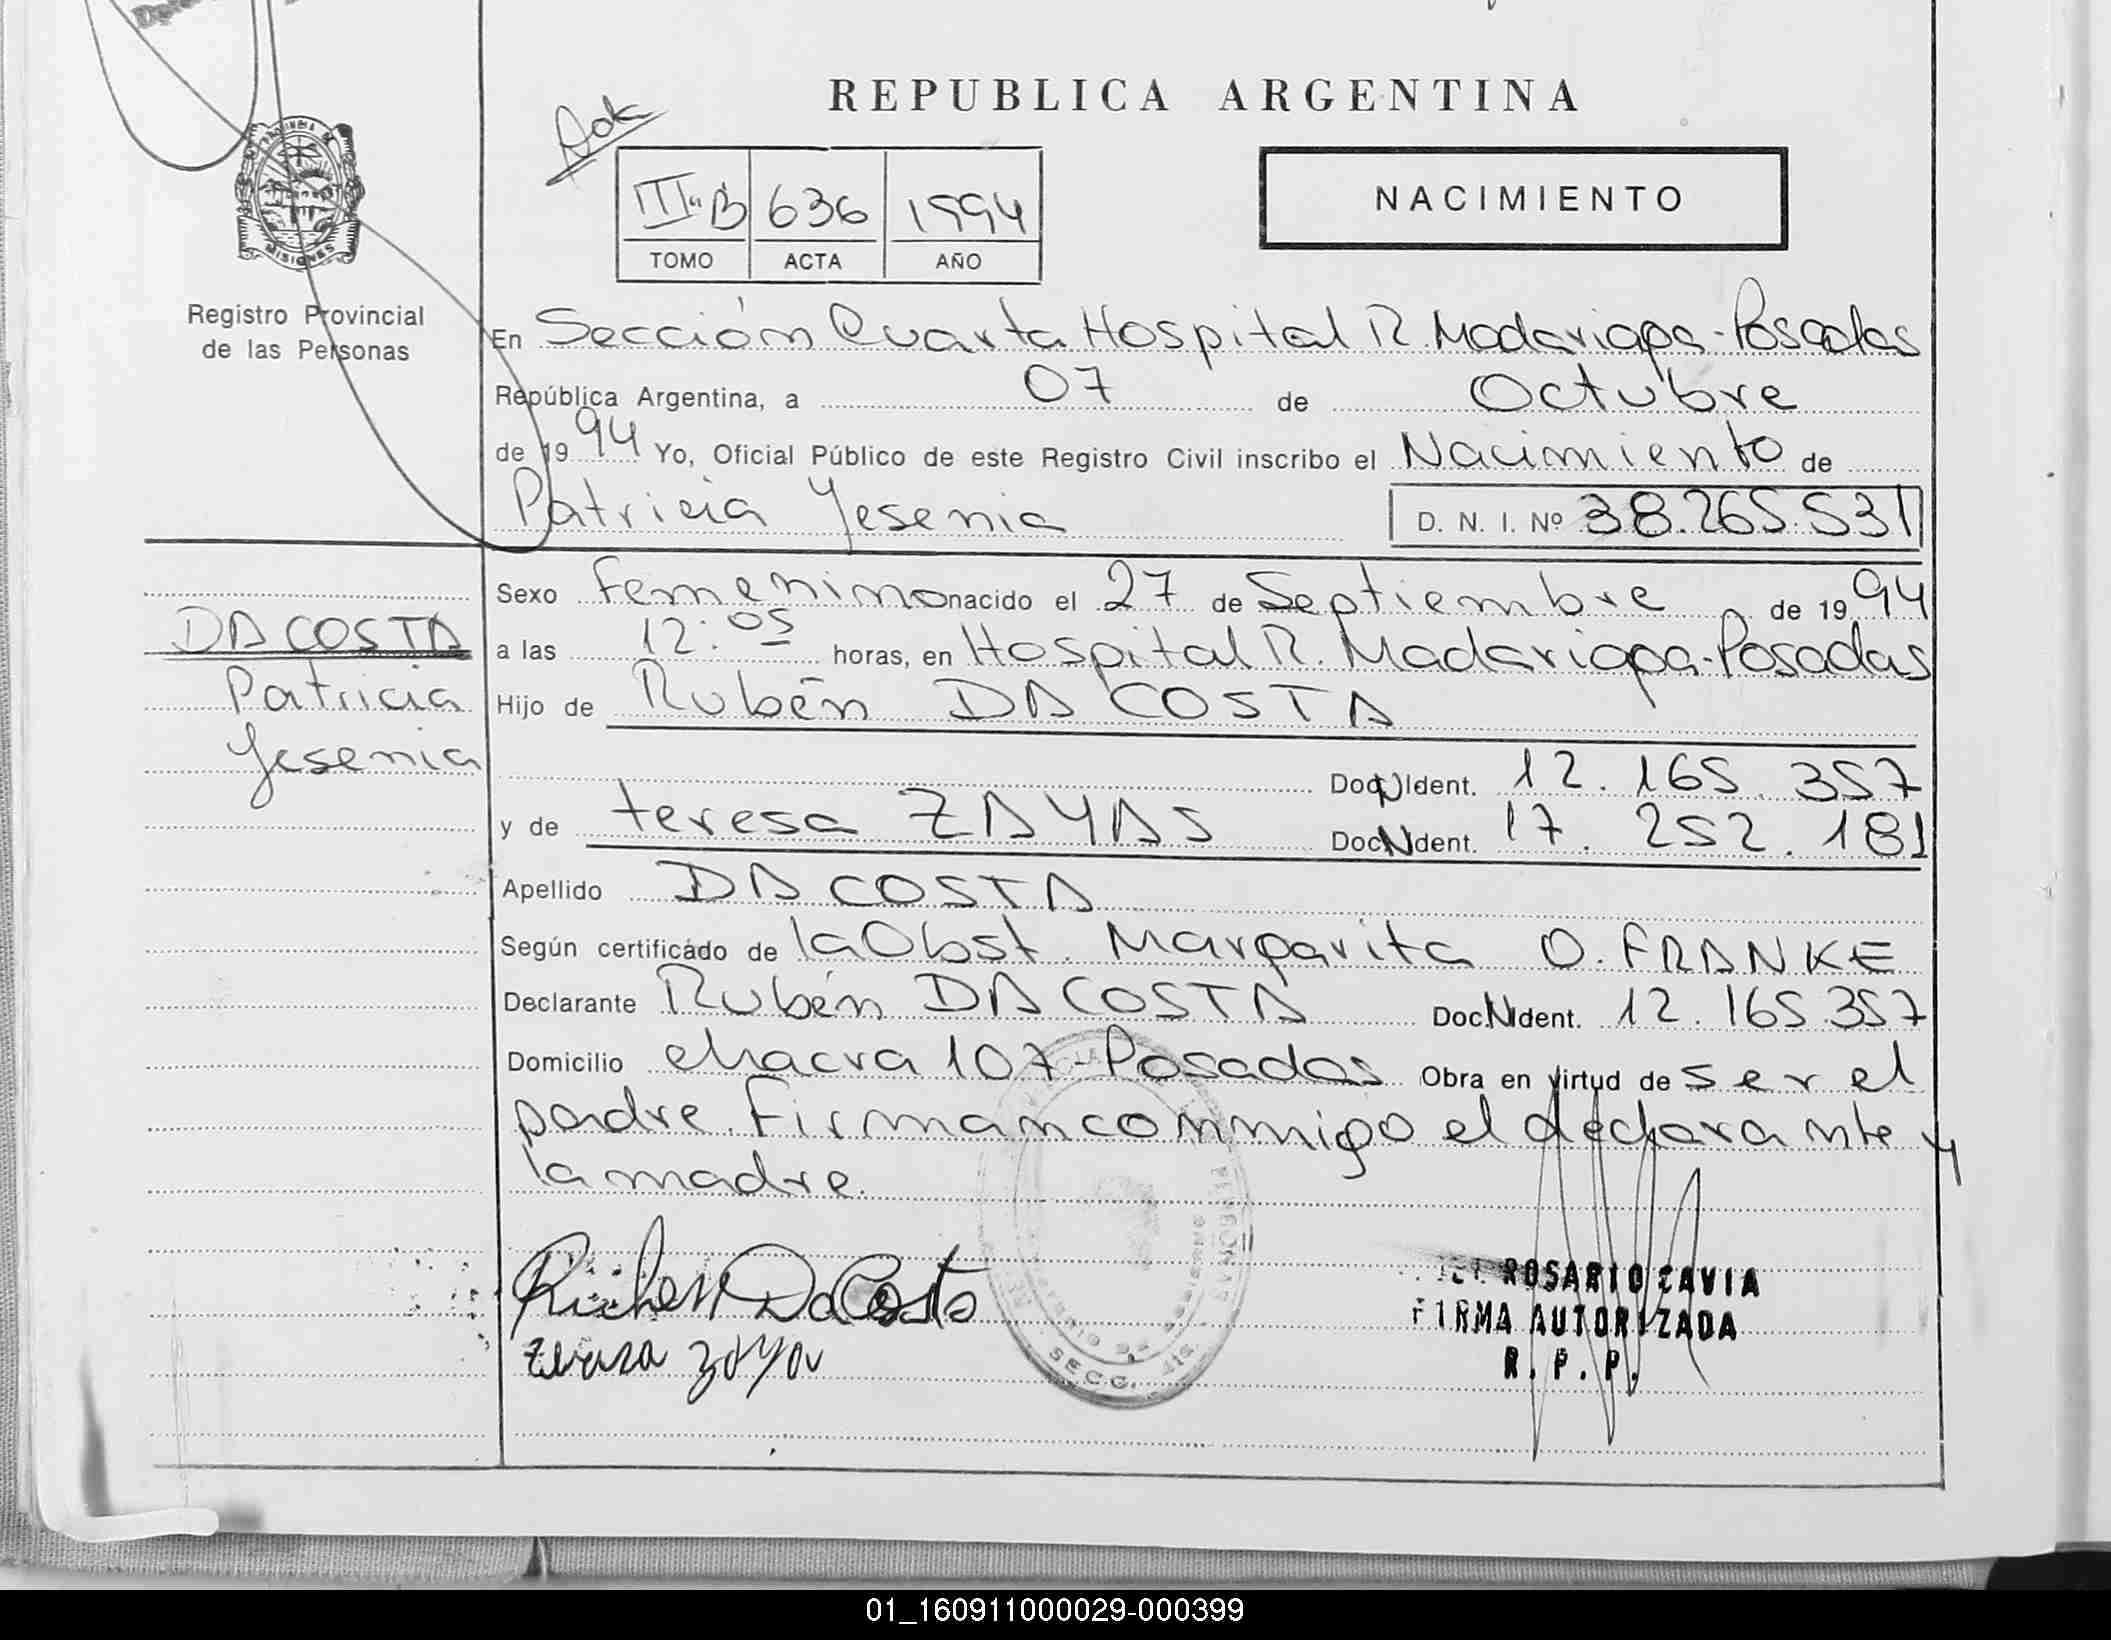 REPUBLICA ARGENTINA
NACIMIENTO
III"B 636 1994
TOMO ACTA AÑO
PROVINCIA DE MISIONES
Registro Provincial
de las Personas
En Sección Cuarta Hospital R. Madariaga - Posadas
República Argentina, a 07 de Octubre
de 1994 Yo, Oficial Público de este Registro Civil inscribo el Nacimiento de
Patricia Yesenia D. N. I. Nº 38.265.531
DA COSTA
Patricia
Yesenia
Sexo Femenino nacido el 27 de Septiembre de 1994
a las 12:05 horas, en Hospital R. Madariaga-Posadas
Hijo de Rubén DA COSTA
Doc. Ident. 12.165.357
y de teresa ZAYAS Doc. Ident. 17.252.181
Apellido DA COSTA
Según certificado de la Obst. Margarita O. FRANKE
Declarante Rubén DA COSTA Doc. Ident. 12.165.357
Domicilio chacra 107-Posadas Obra en virtud de ser el
padre. Firman conmigo el declarante y
la madre.
Da Costa
ROSARIO CAVIA
FIRMA AUTORIZADA
R. P. P.
SECC. 4ta.
01_160911000029-000399